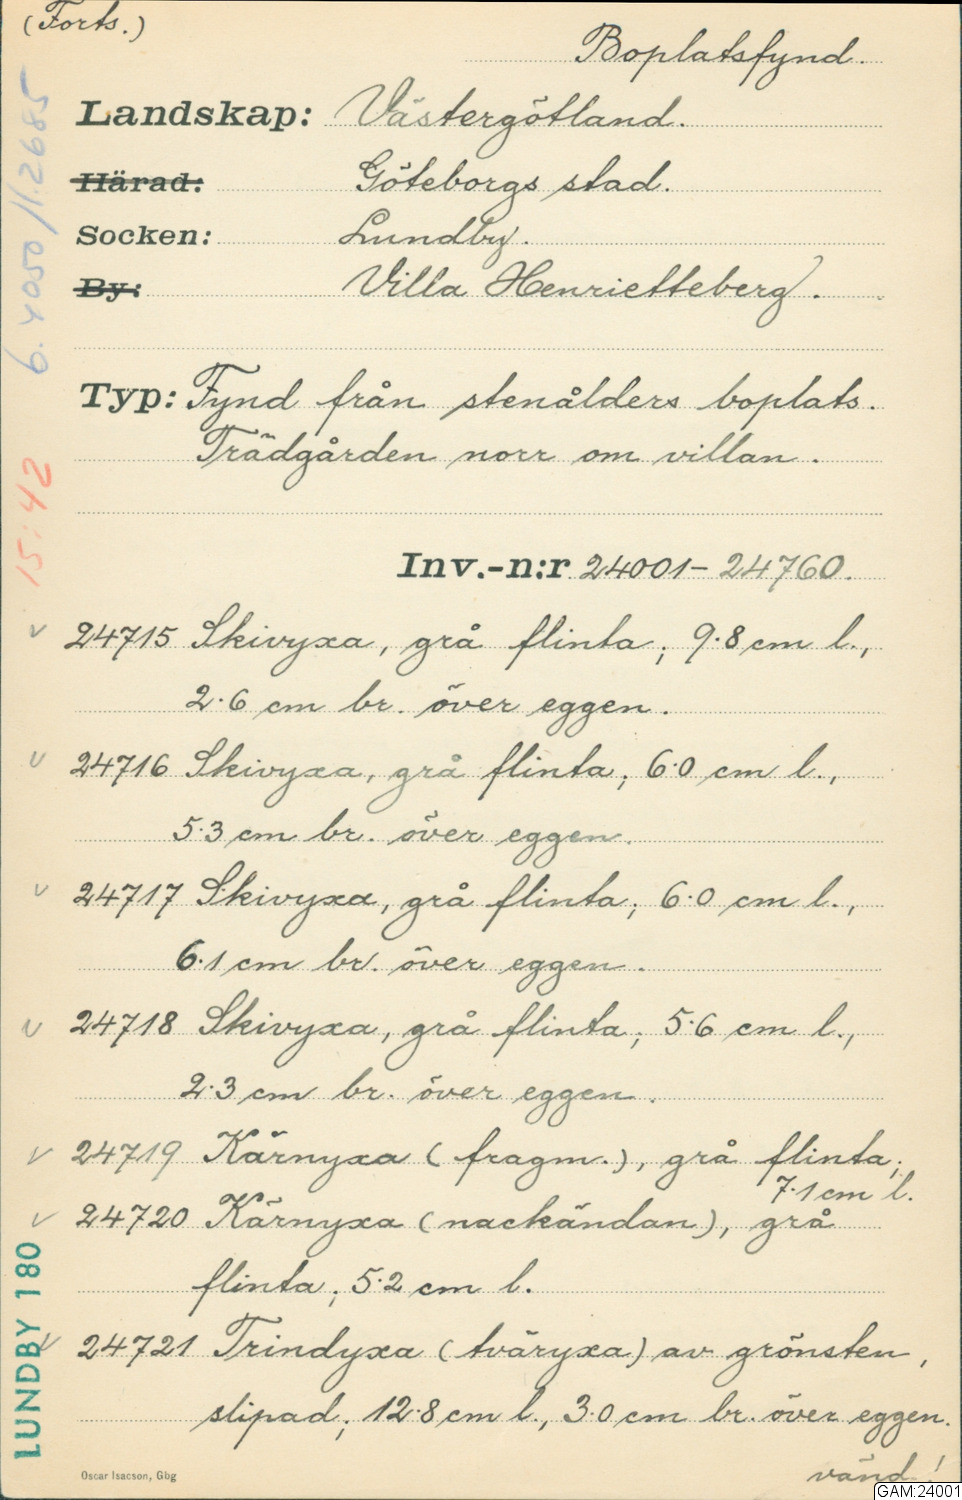 (Forts.)
Boplatsfynd.
Landskap: Västergötland.
Härad: Göteborgs stad.
Socken: Lundby.
By: Villa Henrietteberg.
Typ: Fynd från stenålders boplats.
Trädgården norr om villan.
Inv.-n:r 24001-24760.
24715 Skivyxa, grå flinta; 9.8 cm l.,
2.6 cm br. över eggen.
24716 Skivyxa, grå flinta; 6.0 cm l.,
5.3 cm br. över eggen.
24717 Skivyxa, grå flinta; 6.0 cm l.,
6.1 cm br. över eggen.
24718 Skivyxa, grå flinta; 5.6 cm l.,
2.3 cm br. över eggen.
24719 Kärnyxa (fragm.), grå flinta;
7.1 cm l.
24720 Kärnyxa (nackändan), grå
flinta; 5.2 cm l.
24721 Trindyxa (tväryxa) av grönsten,
slipad; 12.8 cm l., 3.0 cm br. över eggen.
vänd!
Oscar Isacson, Gbg
6.4050/11.2685
15:42
LUNDBY 180
GAM:24001